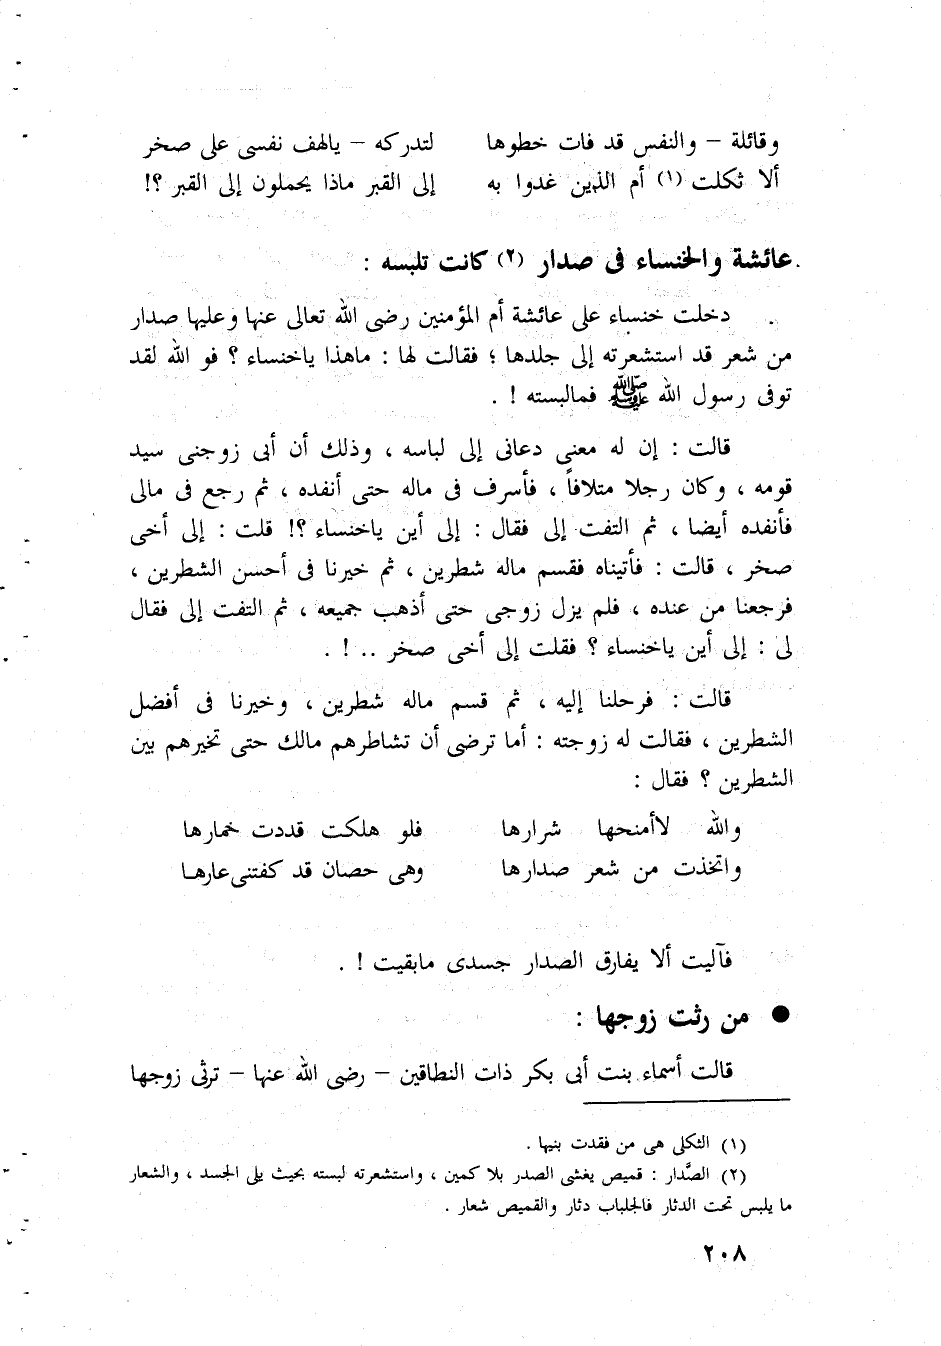 وقائلة – والنفس قد فات خطوها لتدركه – يالهف نفسى على صخر
ألا ثكلت (١) أم الذين غدوا به إلى القبر ماذا يحملون إلى القبر ؟!
عائشة والخنساء فى صدار (٢) كانت تلبسه :
دخلت خنساء على عائشة أم المؤمنين رضى الله تعالى عنها وعليها صدار
من شعر قد استشعرته إلى جلدها ؛ فقالت لها : ماهذا ياخنساء ؟ فو الله لقد
توفى رسول الله ﷺ فمالبسته ! .
قالت : إن له معنى دعانى إلى لباسه ، وذلك أن أبى زوجنى سيد
قومه ، وكان رجلا متلافاً ، فأسرف فى ماله حتى أنفده ، ثم رجع فى مالى
فأنفده أيضا ، ثم التفت إلى فقال : إلى أين ياخنساء ؟! قلت : إلى أخى
صخر ، قالت : فأتيناه فقسم ماله شطرين ، ثم خيرنا فى أحسن الشطرين ،
فرجعنا من عنده ، فلم يزل زوجى حتى أذهب جميعه ، ثم التفت إلى فقال
لى : إلى أين ياخنساء ؟ فقلت إلى أخى صخر .. ! .
قالت : فرحلنا إليه ، ثم قسم ماله شطرين ، وخيرنا فى أفضل
الشطرين ، فقالت له زوجته : أما ترضى أن تشاطرهم مالك حتى تخيرهم بين
الشطرين ؟ فقال :
والله لاأمنحها شرارها فلو هلكت قددت خمارها
واتخذت من شعر صدارها وهى حصان قد كفتنى عارها
فآليت ألا يفارق الصدار جسدى مابقيت ! .
● من رثت زوجها :
قالت أسماء بنت أبى بكر ذات النطاقين – رضى الله عنها – ترثى زوجها
(١) الثكلى هى من فقدت بنيها .
(٢) الصَّدار : قميص يغشى الصدر بلا كمين ، واستشعرته لبسته بحيث يلى الجسد ، والشعار
ما يلبس تحت الدثار فالجلباب دثار والقميص شعار .
٢٠٨